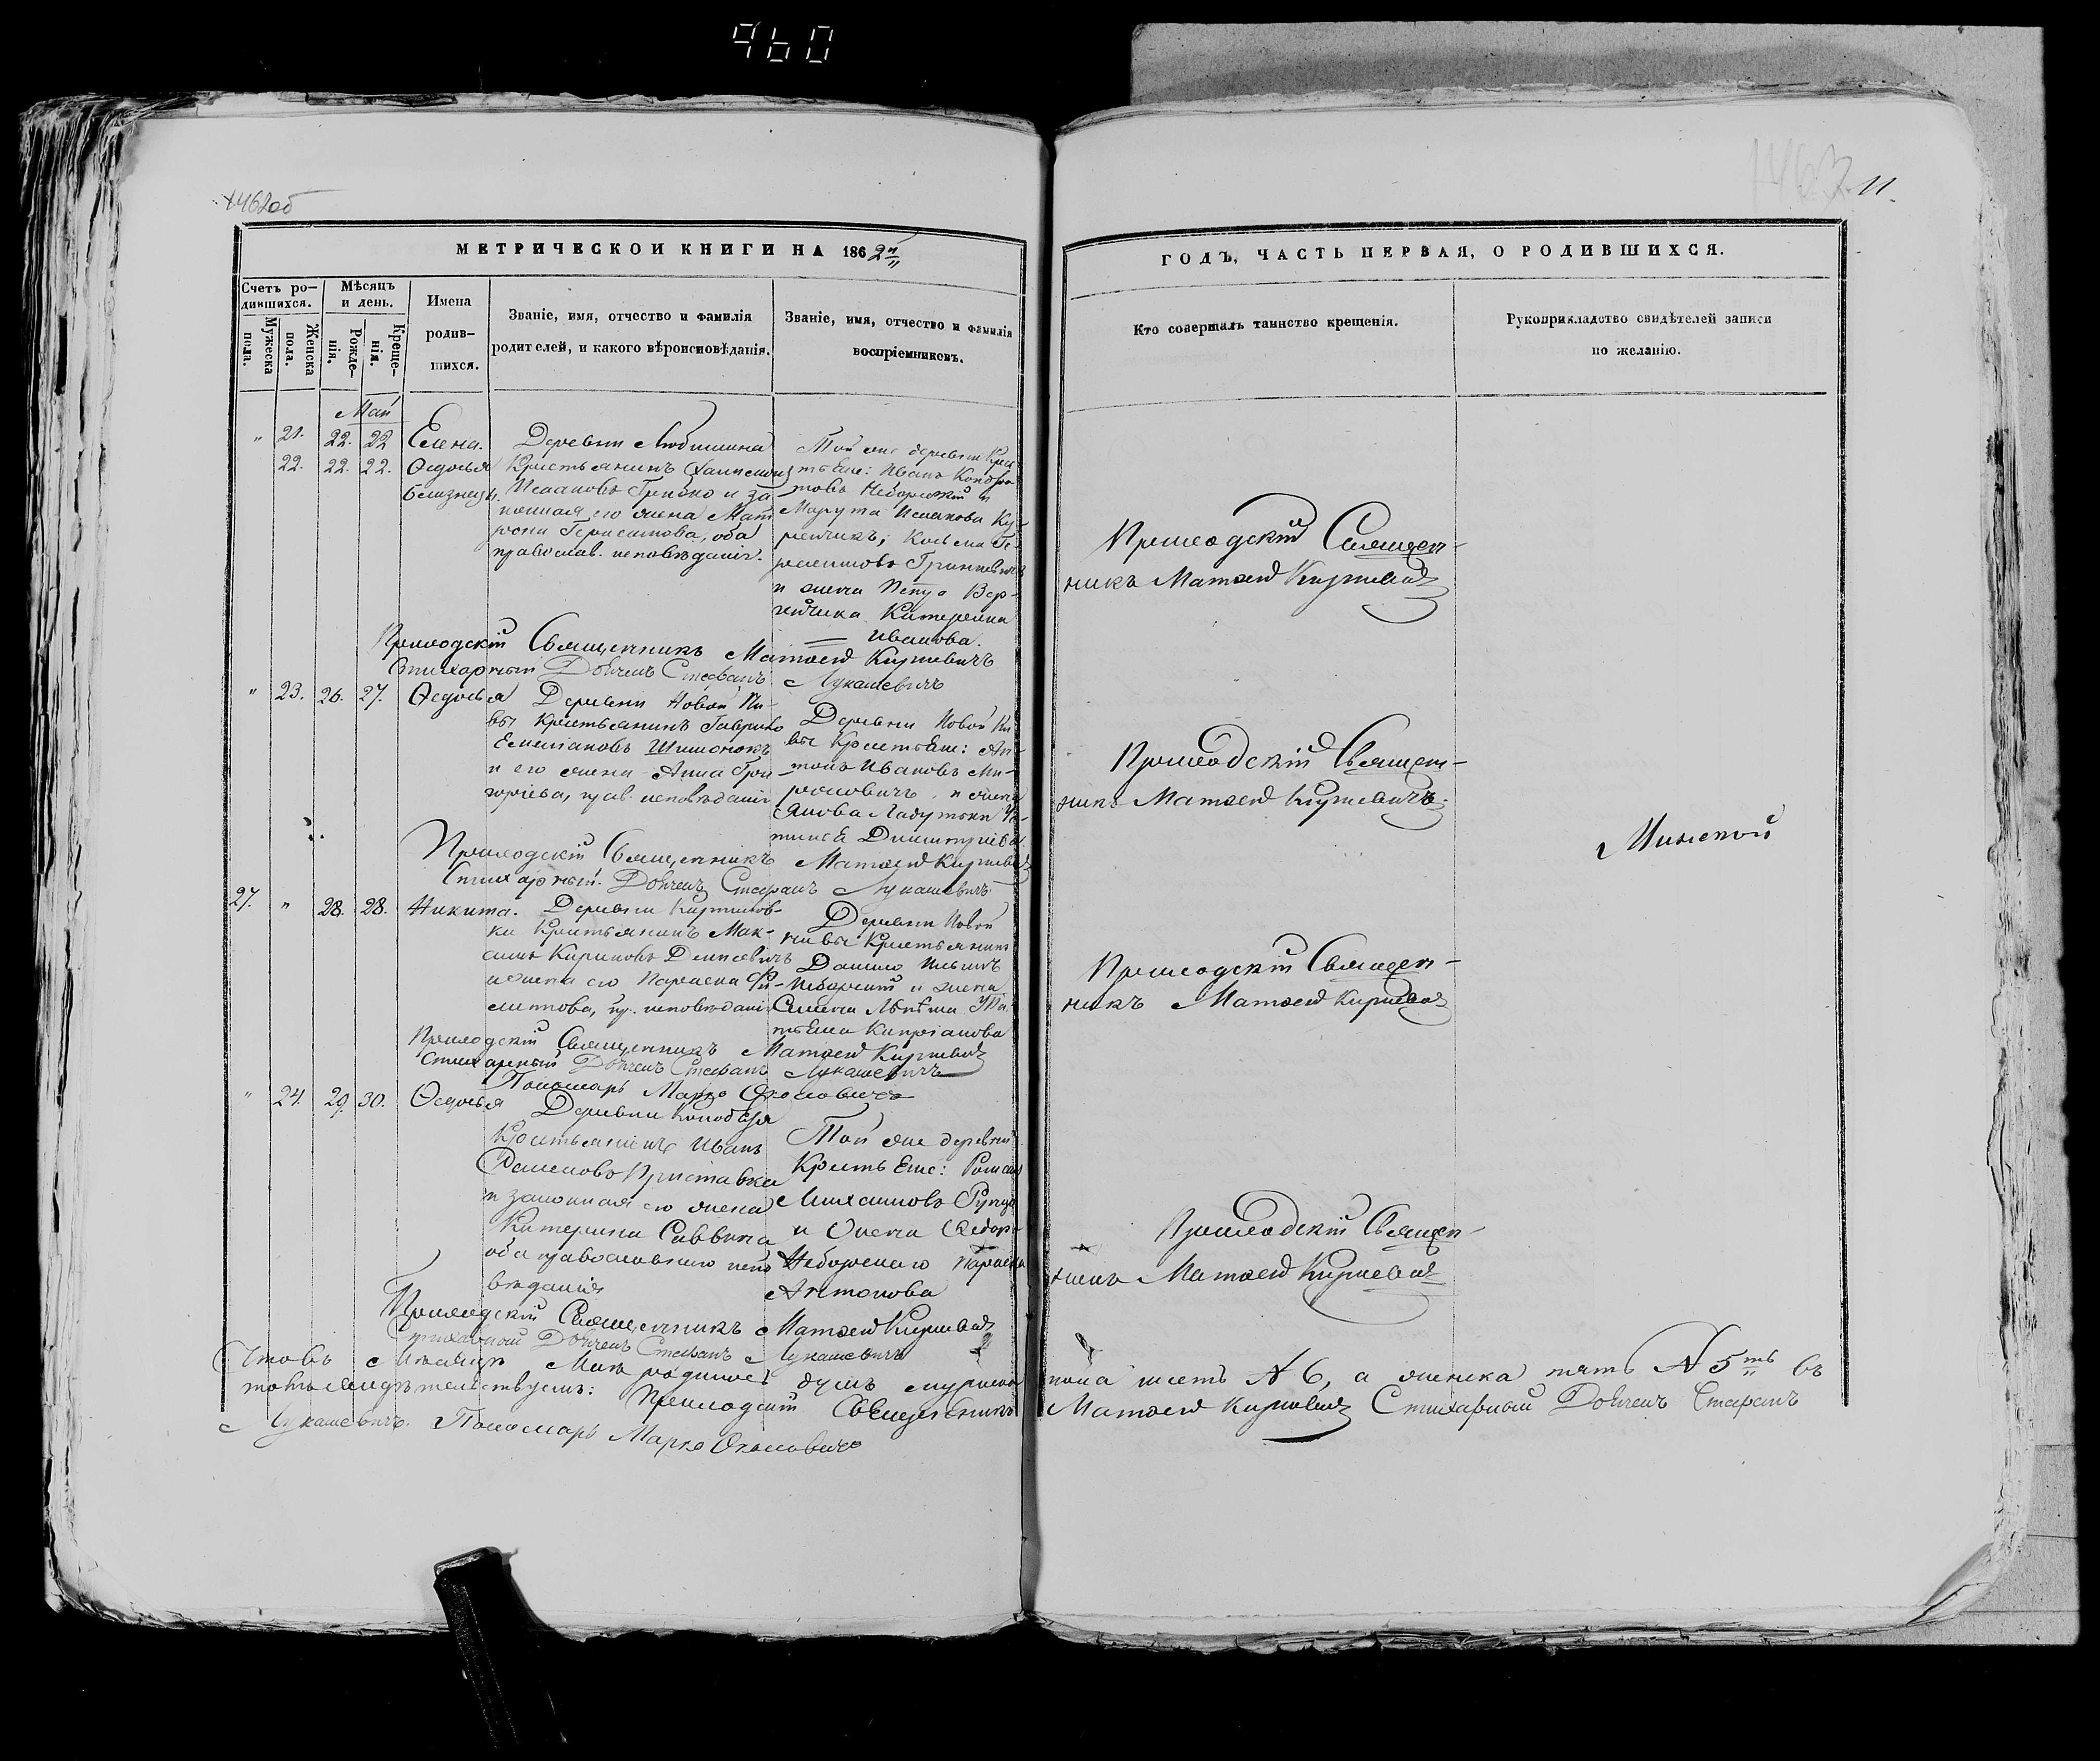 960
1462об
11.
МЕТРИЧЕСКОЙ КНИГИ НА 1862й
ГОДЪ, ЧАСТЬ ПЕРВАЯ, О РОДИВШИХСЯ.
Счетъ родившихся.
Мужеска пола.
Женска пола.
Мѣсяцъ и день.
Рожденія.
Крещенія.
Имена родившихся.
Званіе, имя, отчество и фамилія
родителей, и какого вѣроисповѣданія.
Званіе, имя, отчество и фамилія
воспріемниковъ.
Кто совершалъ таинство крещенія.
Рукоприкладство свидѣтелей записи
по желанію.
Май
" 21. 22. 22 Елена.
22. 22. 22. Ѳедосья
близнецы.
Деревни
Крестьянинъ
Исааковъ Грибко и за
конная его жена Мат
рона Герасимова, оба
православ. исповѣданія.
Той же деревни Крес
тьяне: Иванъ Кондра
товъ Неборскій и
Марута Исаакова
Козьма Ге
расимовъ Гринкевичъ
и жена Петра
Катерина
Иванова.
Приходскій Священ-
никъ Матѳей Киркевичъ
Приходскій Священникъ Матѳей Киркевичъ
Стихарный Дьячекъ Стефанъ Лукашевичъ
" 23. 26. 27. Ѳедосья
Деревни Новой Ни-
вы Крестьянинъ Гаврило
Емеліановъ Шишонокъ
и его жена Анна Гри
горіева, прав. исповѣданія
Деревни Новой Ни
вы Крестьяне: Ан-
тонъ Ивановъ Ми-
роновичъ и жена
Якова
Димитріева
Приходскій Священ-
никъ Матѳей Киркевичъ.
Минской
Приходскій Священникъ Матѳей Киркевичъ
Стихарный Дьячекъ Стефанъ Лукашевичъ
27. " 28. 28. Никита.
Деревни
ки Крестьянинъ Мак-
симъ Кириковъ Денисевичъ
и жена его Параскева Фи-
липова, пр. исповѣданія
Деревни Новой
Нивы Крестьянинъ
Данило Ильинъ
Неборскій и жена
Семена Та
тьяна Кипріанова
Приходскій Священ-
никъ Матѳей Киркевичъ
Приходскій Священникъ Матѳей Киркевичъ
Стихарный Дьячекъ Стефанъ Лукашевичъ
Пономарь Марко
" 24. 29. 30. Ѳедосья
Деревни
Крестьянинъ Иванъ
Приставка
и законная его жена
Катерина Саввина
оба православнаго испо
вѣданія
Той же деревни
Крестьяне: Романъ
Михаиловъ
и жена Ѳедора
Неборскаго
Антонова
Приходскій Священ-
никъ Матѳей Киркевичъ
Приходскій Священникъ Матѳей Киркевичъ
Стихарный Дьячекъ Стефанъ Лукашевичъ
Итого въ Мѣсяцѣ Маѣ родилось душъ мужеска пола шесть N 6, а женска пять N 5ть въ
томъ свидѣтельствуемъ: Приходскій Священникъ Матѳей Киркевичъ Стихарный Дьячекъ Стефанъ
Лукашевичъ. Пономарь Марко